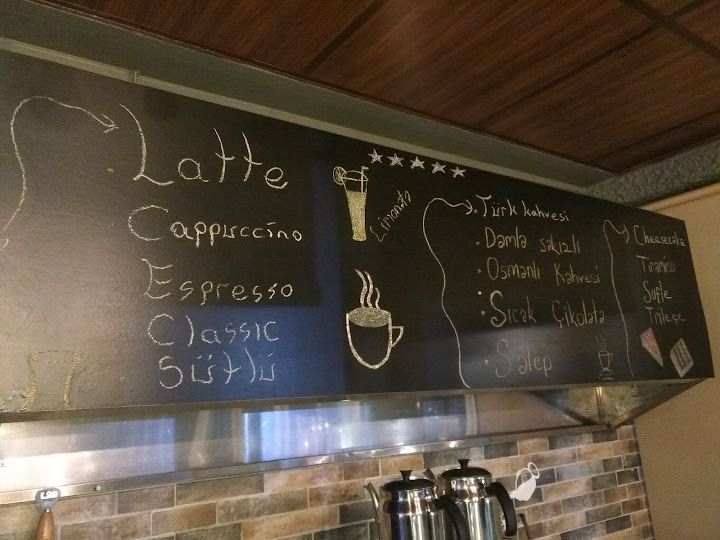 Latte
Cappuccino
Espresso
Classic
Sütlü
Limonata
Türk kahvesi
Damla sakızlı
Osmanlı Kahvesi
Sıcak Çikolata
Salep
Cheesecake
Tiramisu
Sufle
Trileçe